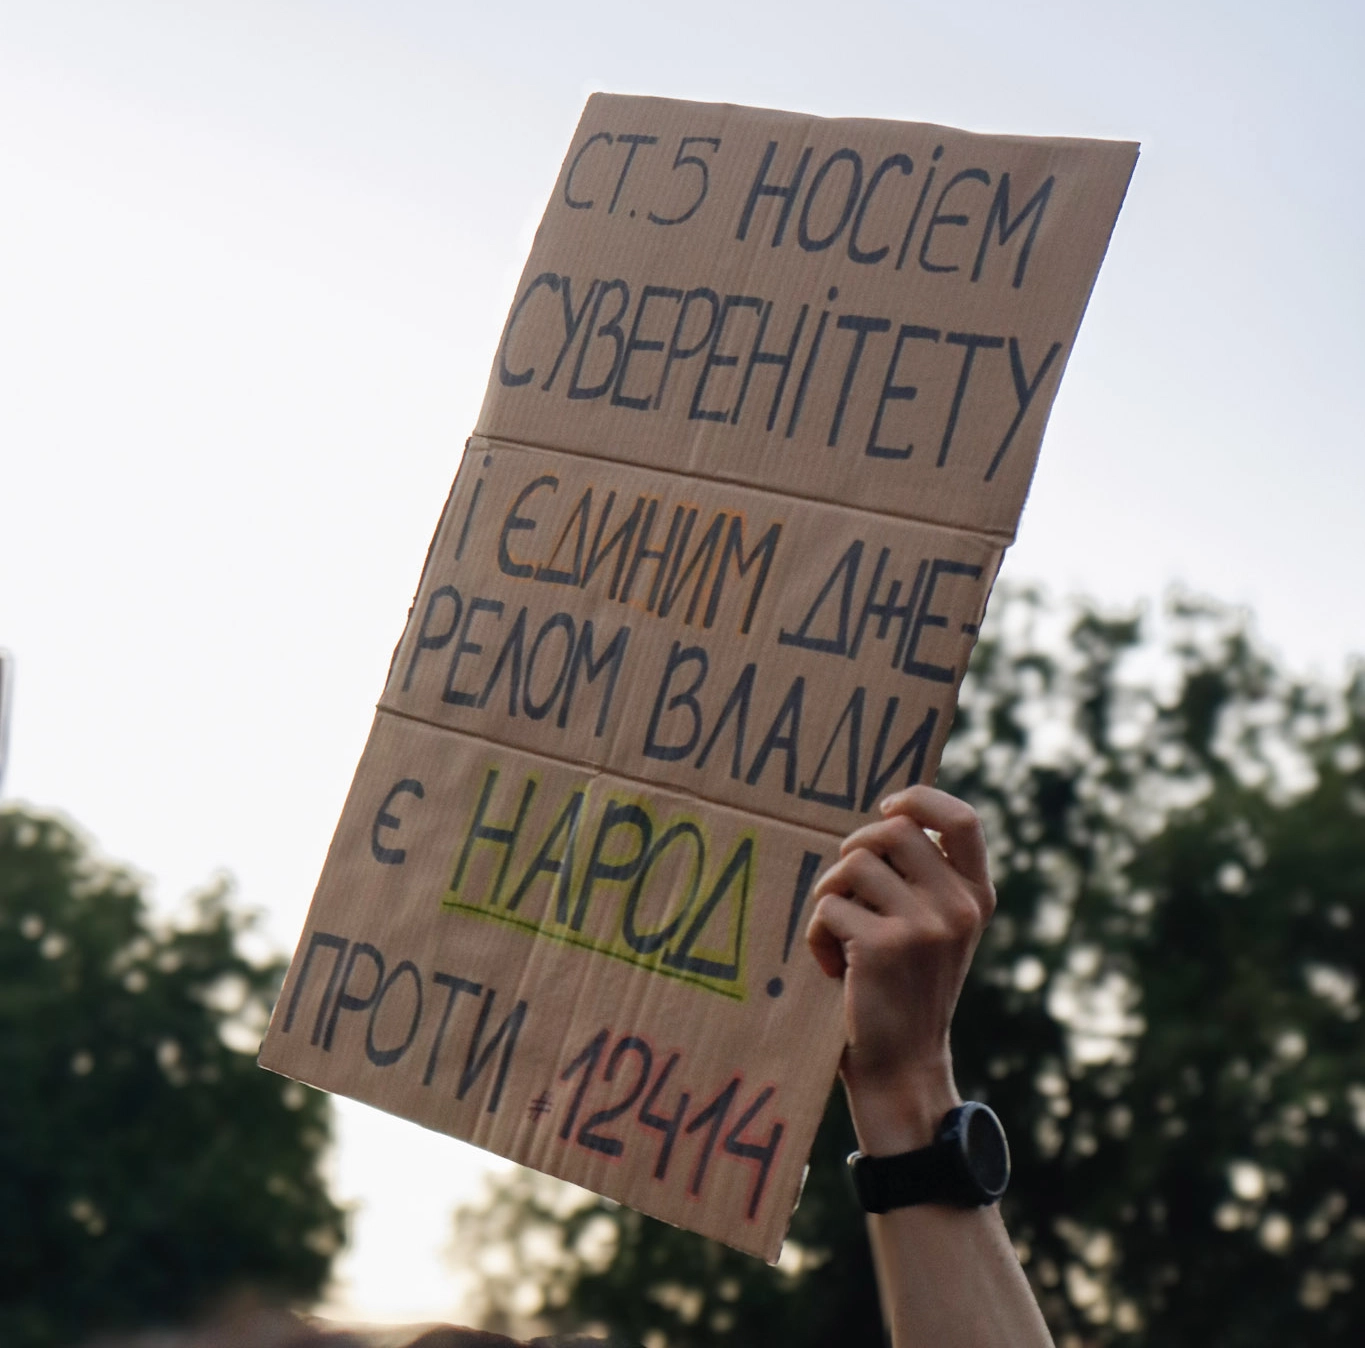 СТ.5 НОСІЄМ
СУВЕРЕНІТЕТУ
І ЄДИНИМ ДЖЕ-
РЕЛОМ ВЛАДИ
Є НАРОД!
ПРОТИ #12414